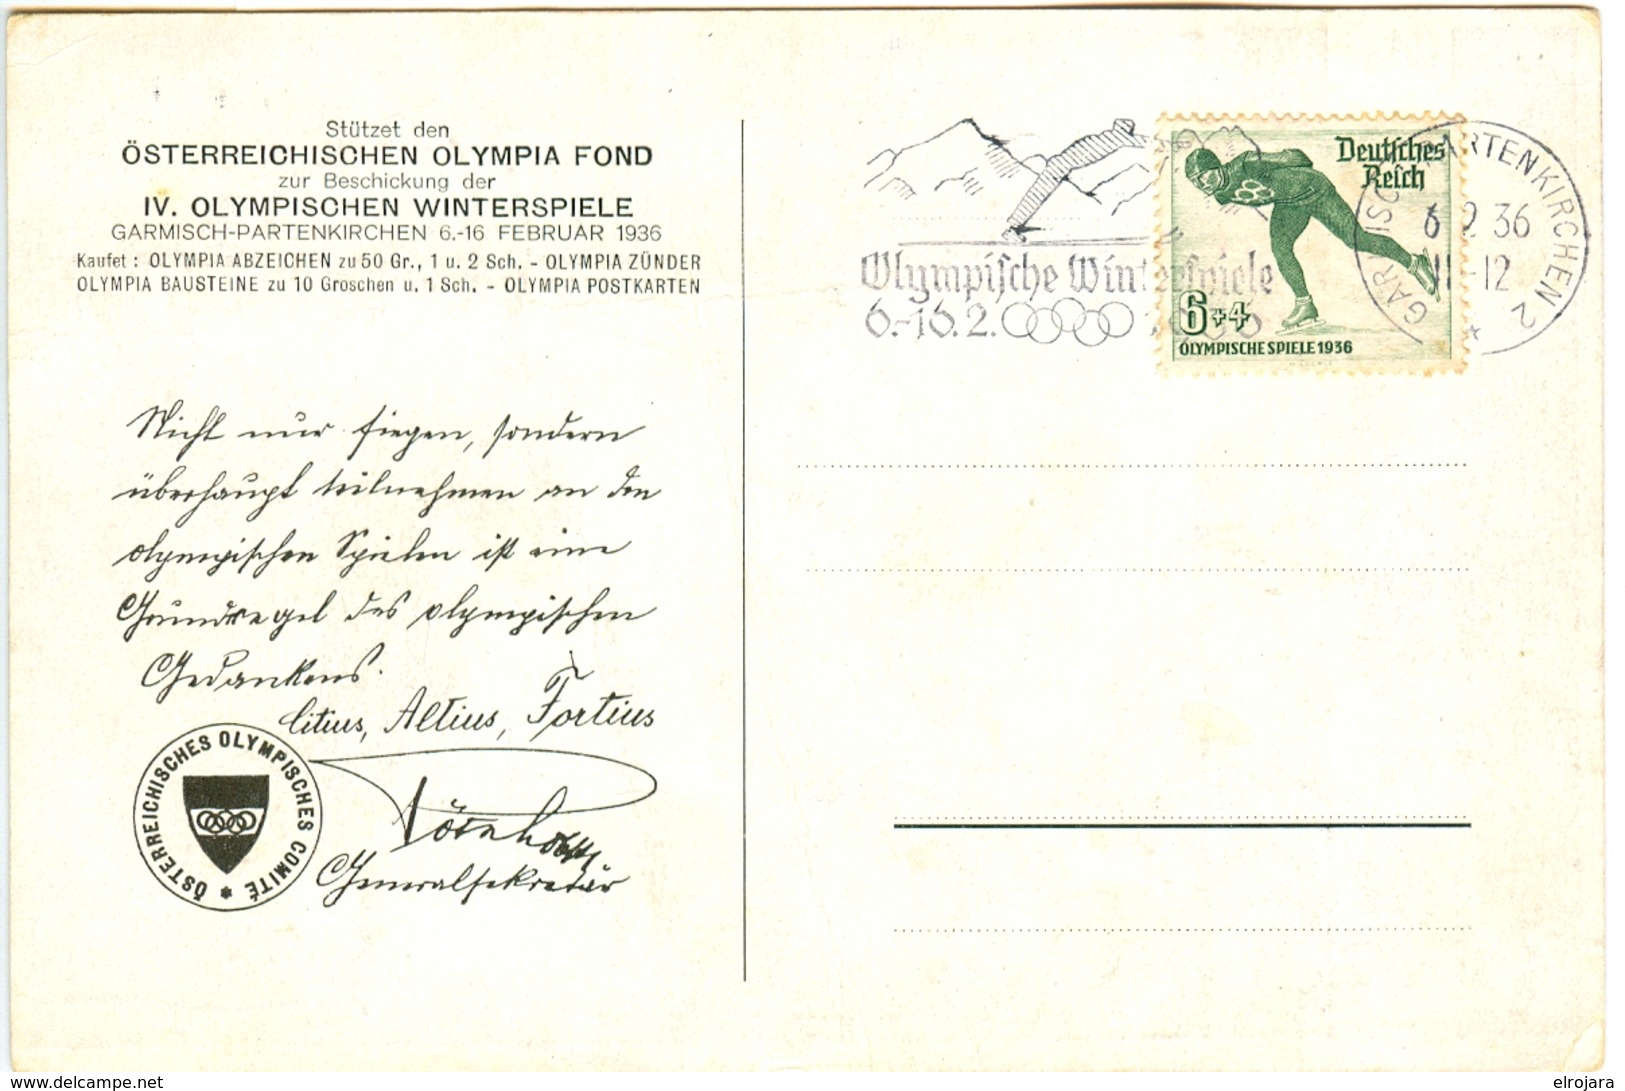 Stützet den
ÖSTERREICHISCHEN OLYMPIA FOND
zur Beschickung der
IV. OLYMPISCHEN WINTERSPIELE
GARMISCH-PARTENKIRCHEN 6.-16 FEBRUAR 1936
Kaufet : OLYMPIA ABZEICHEN zu 50 Gr., 1 u. 2 Sch. - OLYMPIA ZÜNDER
OLYMPIA BAUSTEINE zu 10 Groschen u. 1 Sch. - OLYMPIA POSTKARTEN
Nicht nur siegen, sondern
überhaupt teilnehmen an den
olympischen Spielen ist eine
Grundregel des olympischen
Gedankens.
Citius, Altius, Fortius
Generalsekretär
ÖSTERREICHISCHES OLYMPISCHES COMITÉ *
Olympische Winterspiele
6.-16.2. 1936
Deutsches
Reich
6+4
OLYMPISCHE SPIELE 1936
GARMISCH-PARTENKIRCHEN 2
6.2.36
11-12
*
www.delcampe.net
elrojara